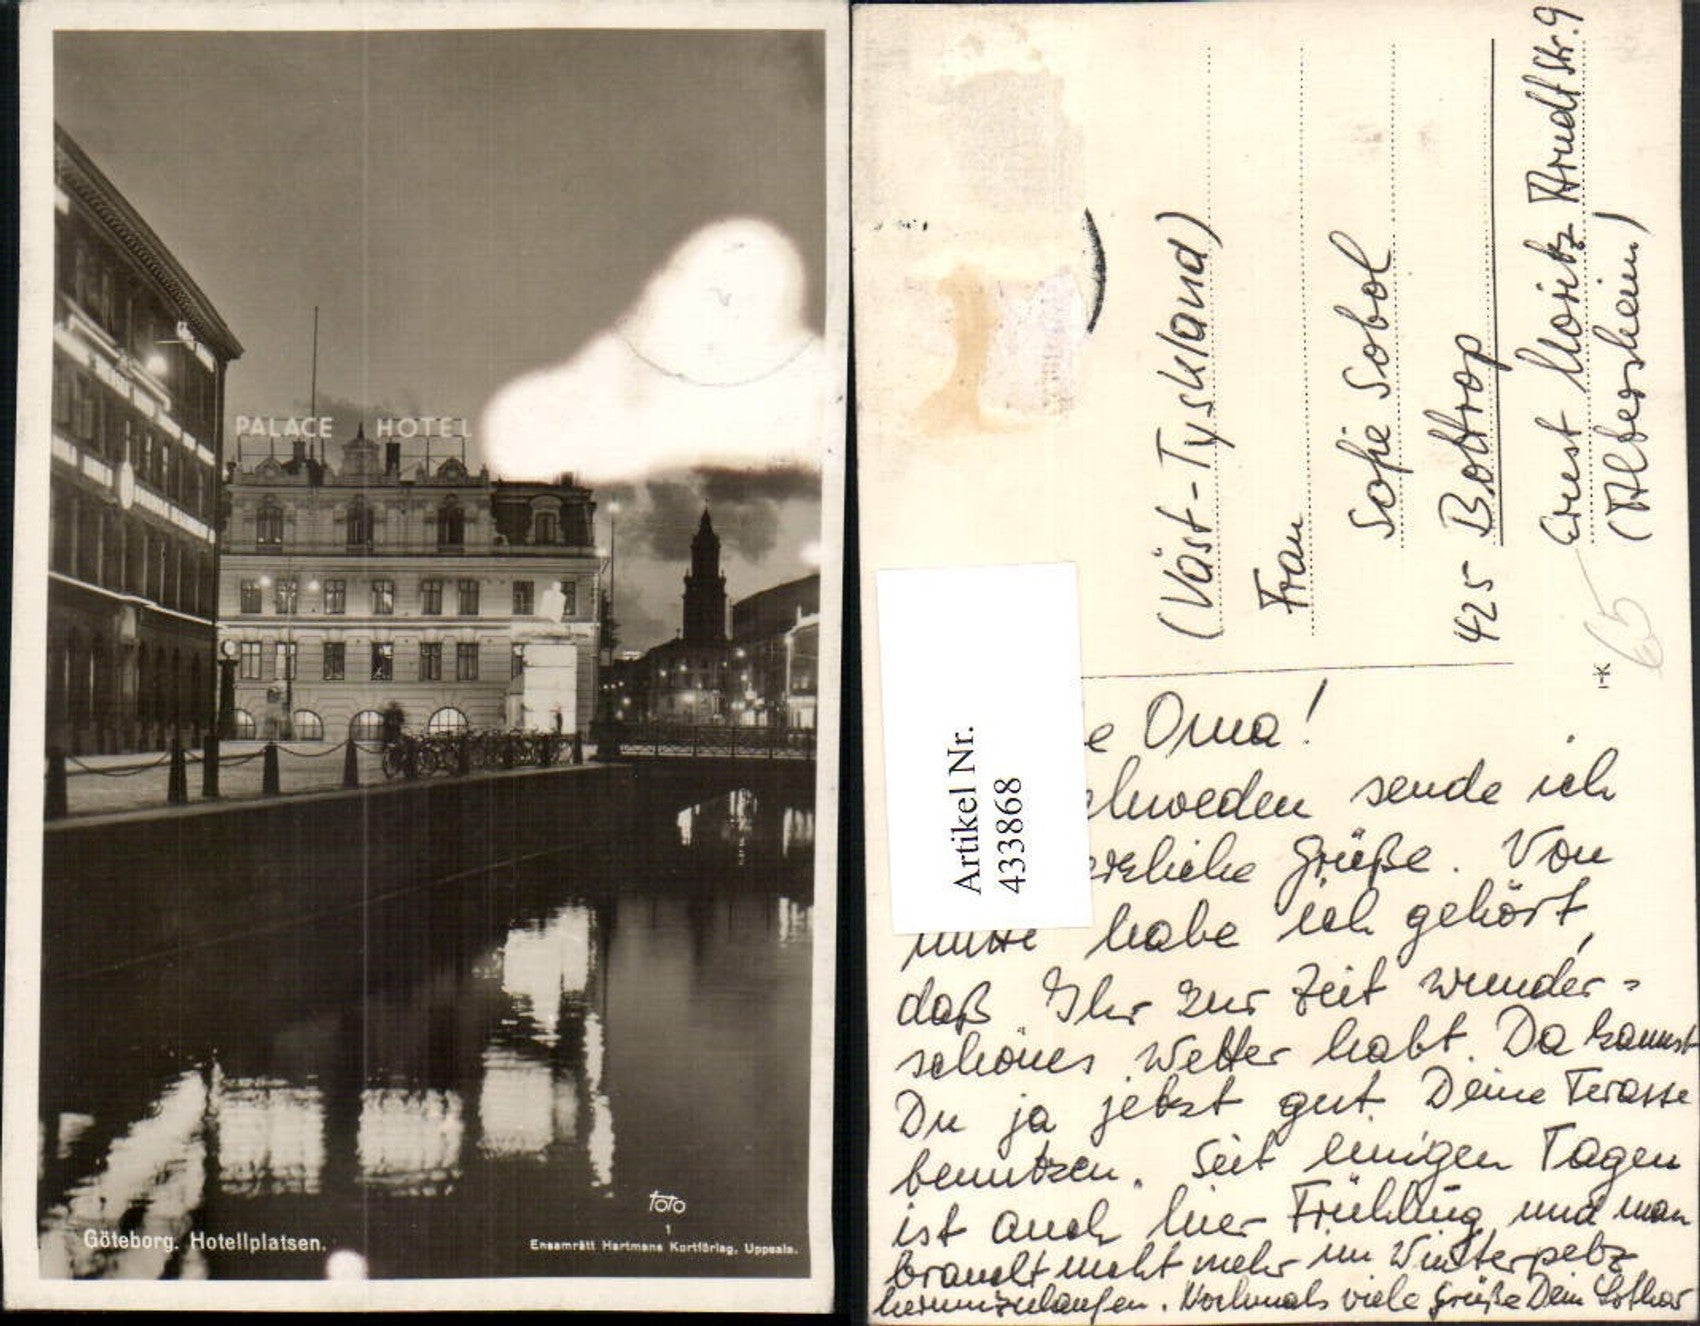 PALACE HOTEL
foto
1
Göteborg. Hotellplatsen.
Ensamrätt Hartmans Kortförlag, Uppsala.
(Väst-Tyskland)
Frau
Sofie Sobol
425 Bottrop
Ernst Moritz Arndtstr. 9
(Albersheim)
65
I-K
Artikel Nr.
433868
e Oma!
chweden sende ich
erzliche Grüße. Von
Mutti habe ich gehört,
daß Ihr zur Zeit wunder=
schönes Wetter habt. Da kannst
Du ja jetzt gut Deine Terasse
benutzen. Seit einigen Tagen
ist auch hier Frühling und man
braucht nicht mehr im Winterpelz
herumzulaufen. Nochmals viele Grüße Dein Lothar